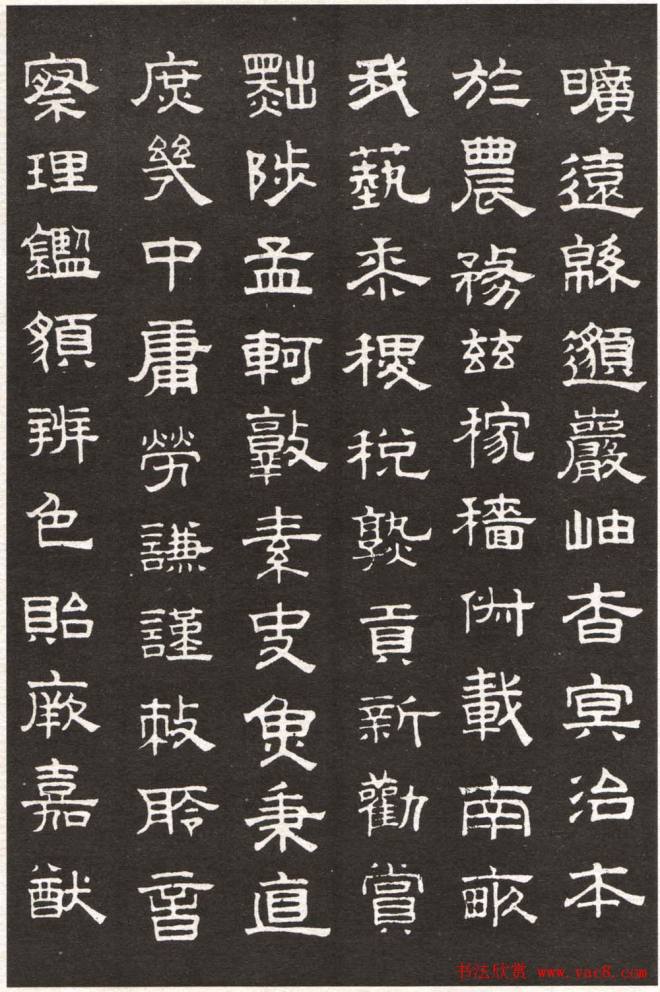 曠遠緜邈巖岫杳冥治本
於農務茲稼穡俶載南畝
我藝黍稷稅熟貢新勸賞
黜陟孟軻敦素史魚秉直
庶幾中庸勞謙謹敕聆音
察理鑑貌辨色貽厥嘉猷
书法欣赏 www.yac8.com